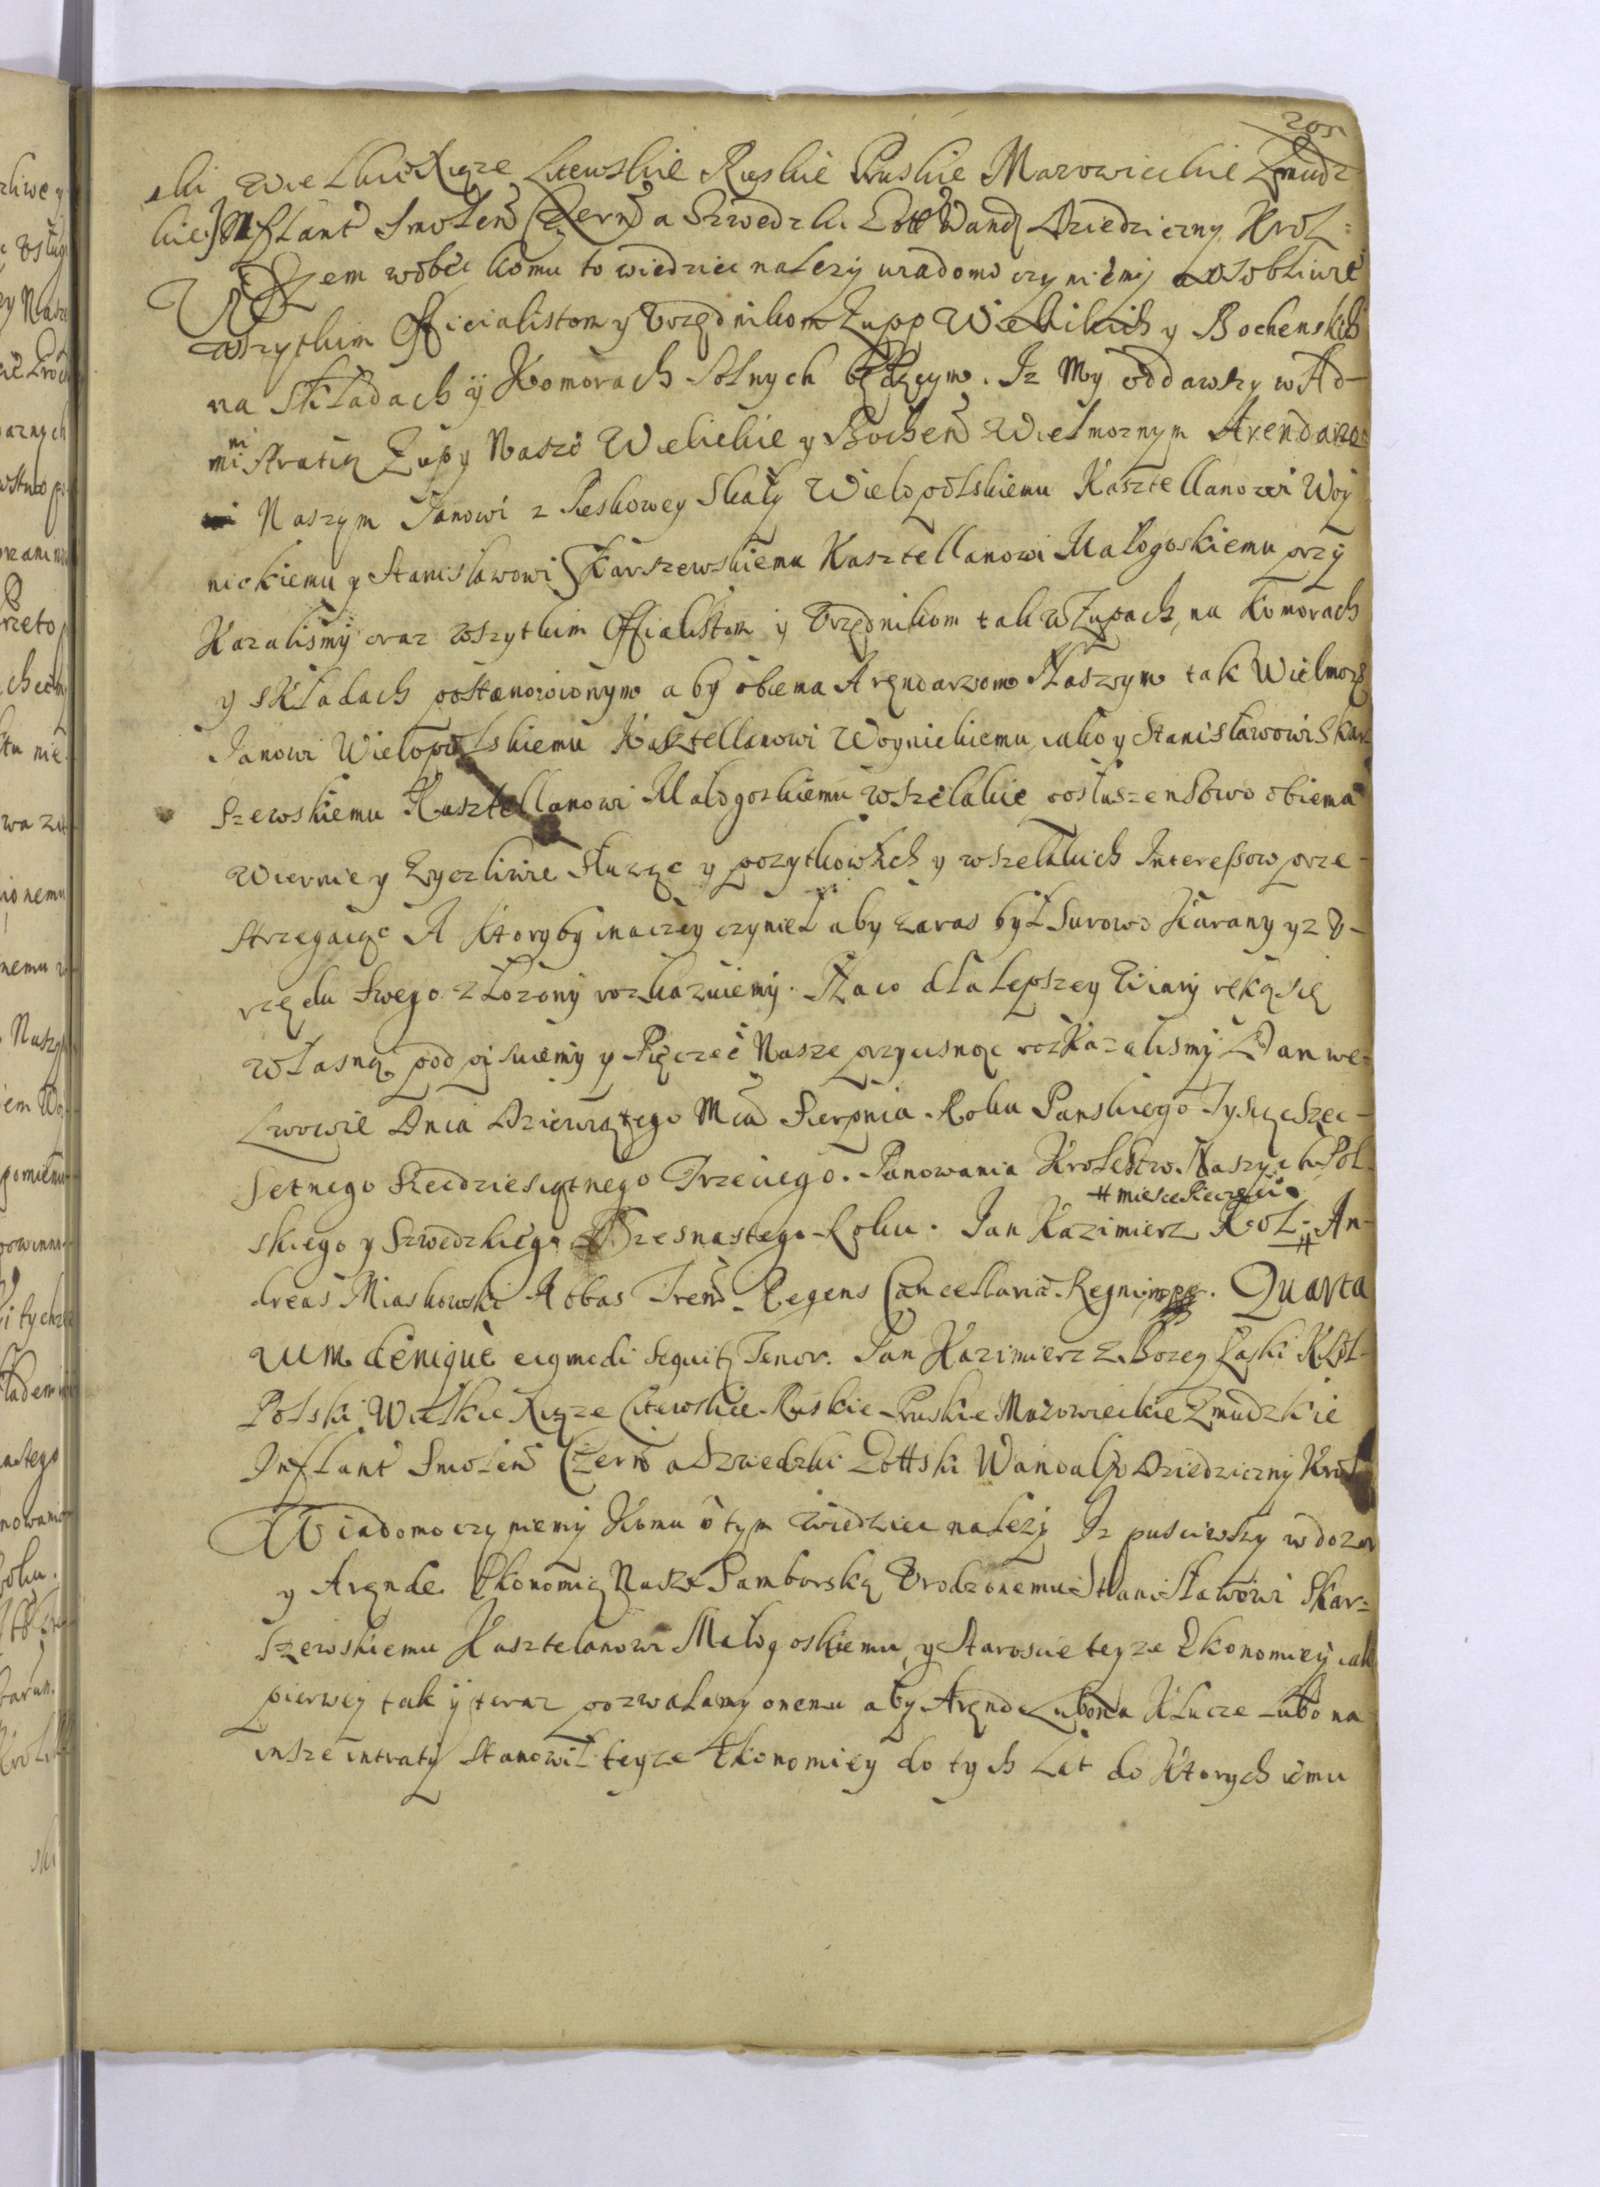 ski Wielkie Xiąze Litewskie Ruskie Pruskie Mazowieckie Zmudz
kie Inflant Smolen Czern a Szwedzki Gott Wand Dziedziczny Krol=
Wszem wobec komu to wiedziec nalezy wiadomo czyniemy a osobliwie
wszytkim Officialistom y Vrzędnikom Zupp Wielickich y Bochenskich
na Składach ÿ Komorach Solnych będącym. Iz My oddawszy w Ad-
ministratią Zupy Nasze Wielickie y Bochen Wielmoznym Arendarzo=
wi Naszym Janowi z Pieskowey Skały Wielopolskiemu Kasztellanowi Woy
nickiemu y Stanisławowi Skarszewskiemu Kasztellanowi Małogoskiemu przy
Kazalismy oraz wszytkim Officialistom y Vrzędnikom tak w Zupach, na Komorach
y Składach postanowionym aby obiema Arendarzom Naszym tak Wielmoz
Janowi Wielopolskiemu Kasztellanowi Woynickiemu iako y Stanisławowi Skar
szewskiemu Kasztellanowi Małogoskiemu wszelakie posłuszenstwo obiema
wiernie y zyczliwie słuząc y pozytkow Ich y wszelakich Interessow prze-
strzegaiąc A ktoryby inaczey czynieł aby zaraz był surowo karany y z V-
rzędu swego złozony rozkazuiemy. Na co dla lepszey wiary ręką się
własną podpisuiemy y Pięczęć Nasze przycisnąc rozkazalismy Dan we=
Lwowie Dnia Dziewiątego Mca Sierpnia Roku Panskiego Tysiąc Szec-
setnego Szecdziesiątnego Trzeciego. Panowania Krolestw Naszych Pol
# miesce Pieczęci
skiego y Szwedzkiego Szesnastego Roku. Jan Kazimierz Krol # An-
dreas Miaskowski Abbas Trem Regens Cancellariae Regni mpp. Quarta
rum denique eiqmodi sequitq Tenor. Jan Kazimierz z Bozey Łaski Krol
Polski Wielkie Xiąze Litewskie Ruskie Pruskie Mazowieckie Zmudzkie
Inflant Smolen Czern a Szwedzki Gottski Wandalsk Dziedziczny Krol
Wiadomo czyniemy Komu o tym wiedziec nalezy Iz pusciwszy w dozor
y Arende Ekonomią Nasze Samborską Vrodzonemu Stanisławowi Skar=
szewskiemu Kasztelanowi Małogoskiemu, y Staroscie teyze Ekonomiey iak
pierwey tak ÿ teraz pozwalamy onemu aby Arende lubo na Klucze lubo na
insze intraty stanowił teyze Ekonomiey do tych Lat do ktorych iemu